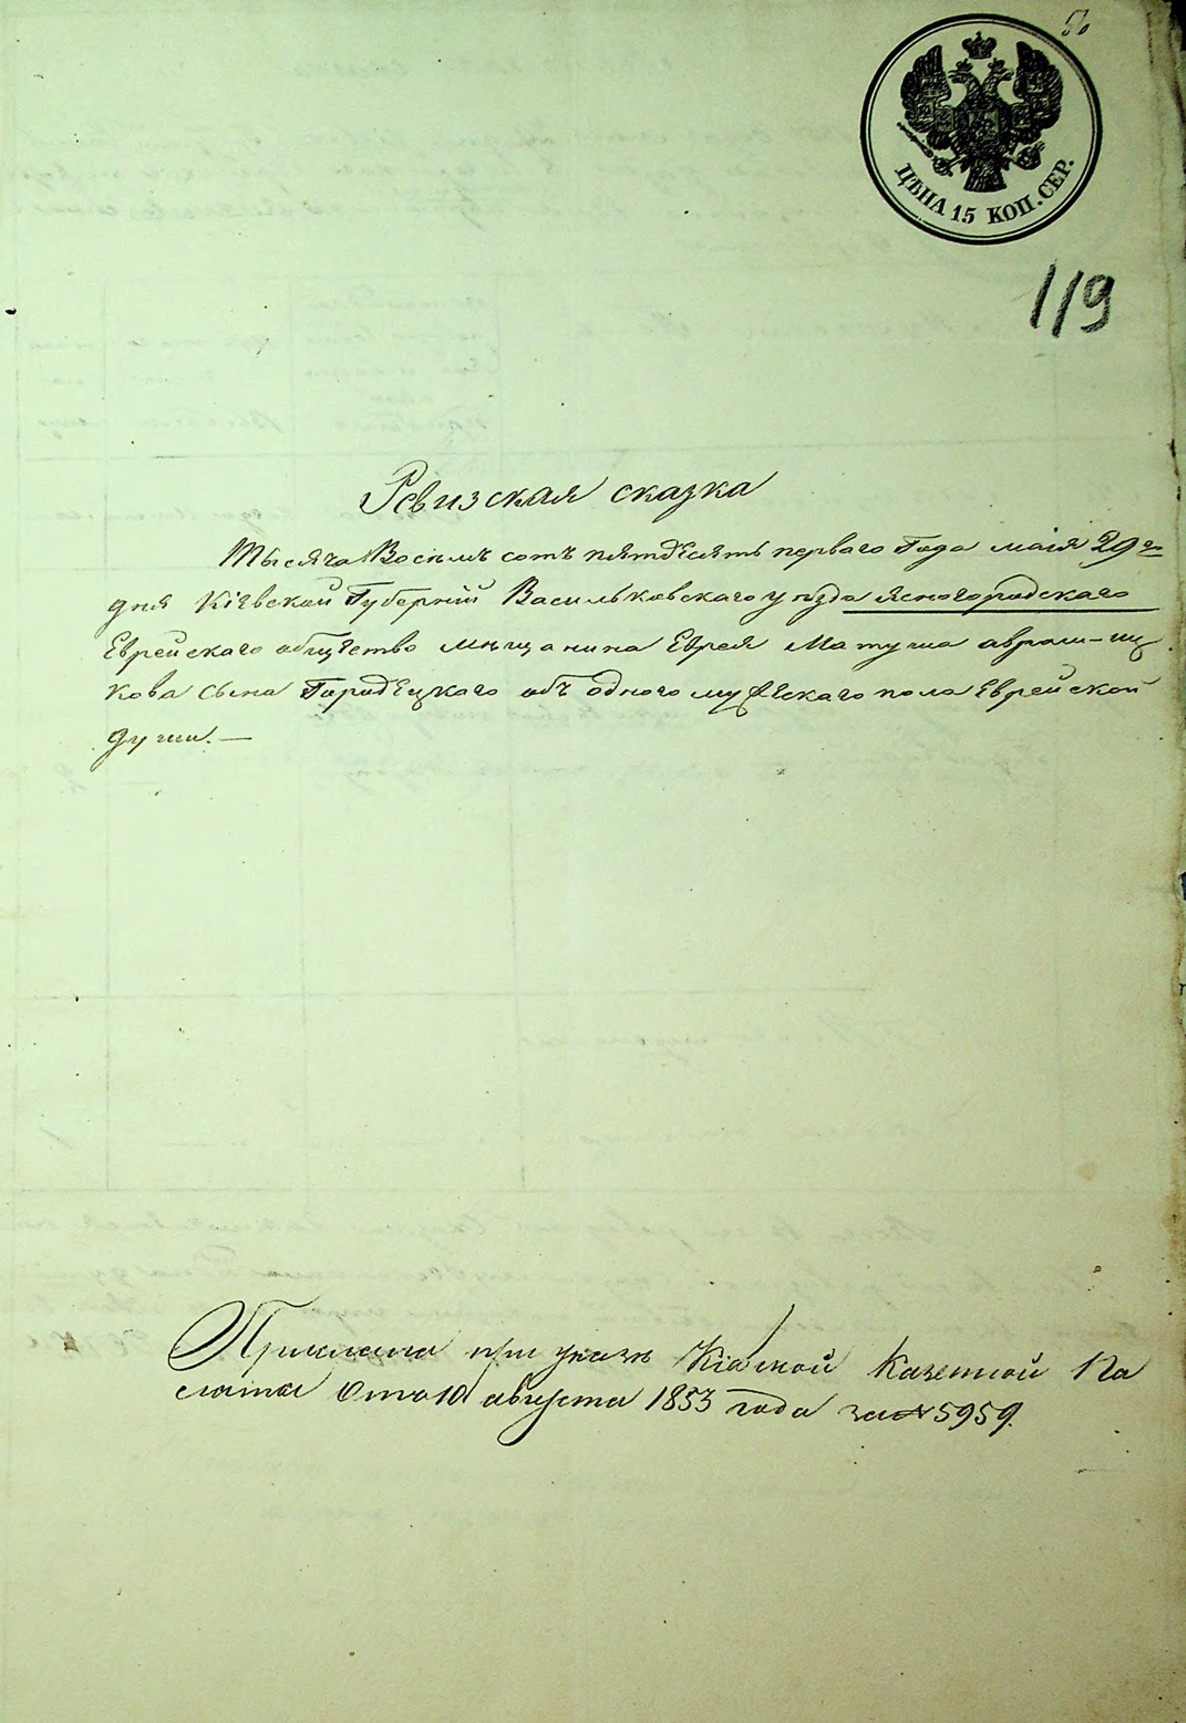 50
ЦѢНА 15 КОП. СЕР.
119
Ревизская сказка
Тысяча Восемъ сотъ пятдесятъ перваго Года маія 29го
дня Кіевской Губерніи Васильковскаго уѣзда Ясногородскаго
Еврейскаго общество мѣщанина Еврея Матуша Аврам-иц
кова сына Городецкаго объ одного мужескаго пола Еврейской
души.—
Прислана при указѣ Кіевской Казенной Па
латы Отъ 10 августа 1853 года за № 5959.